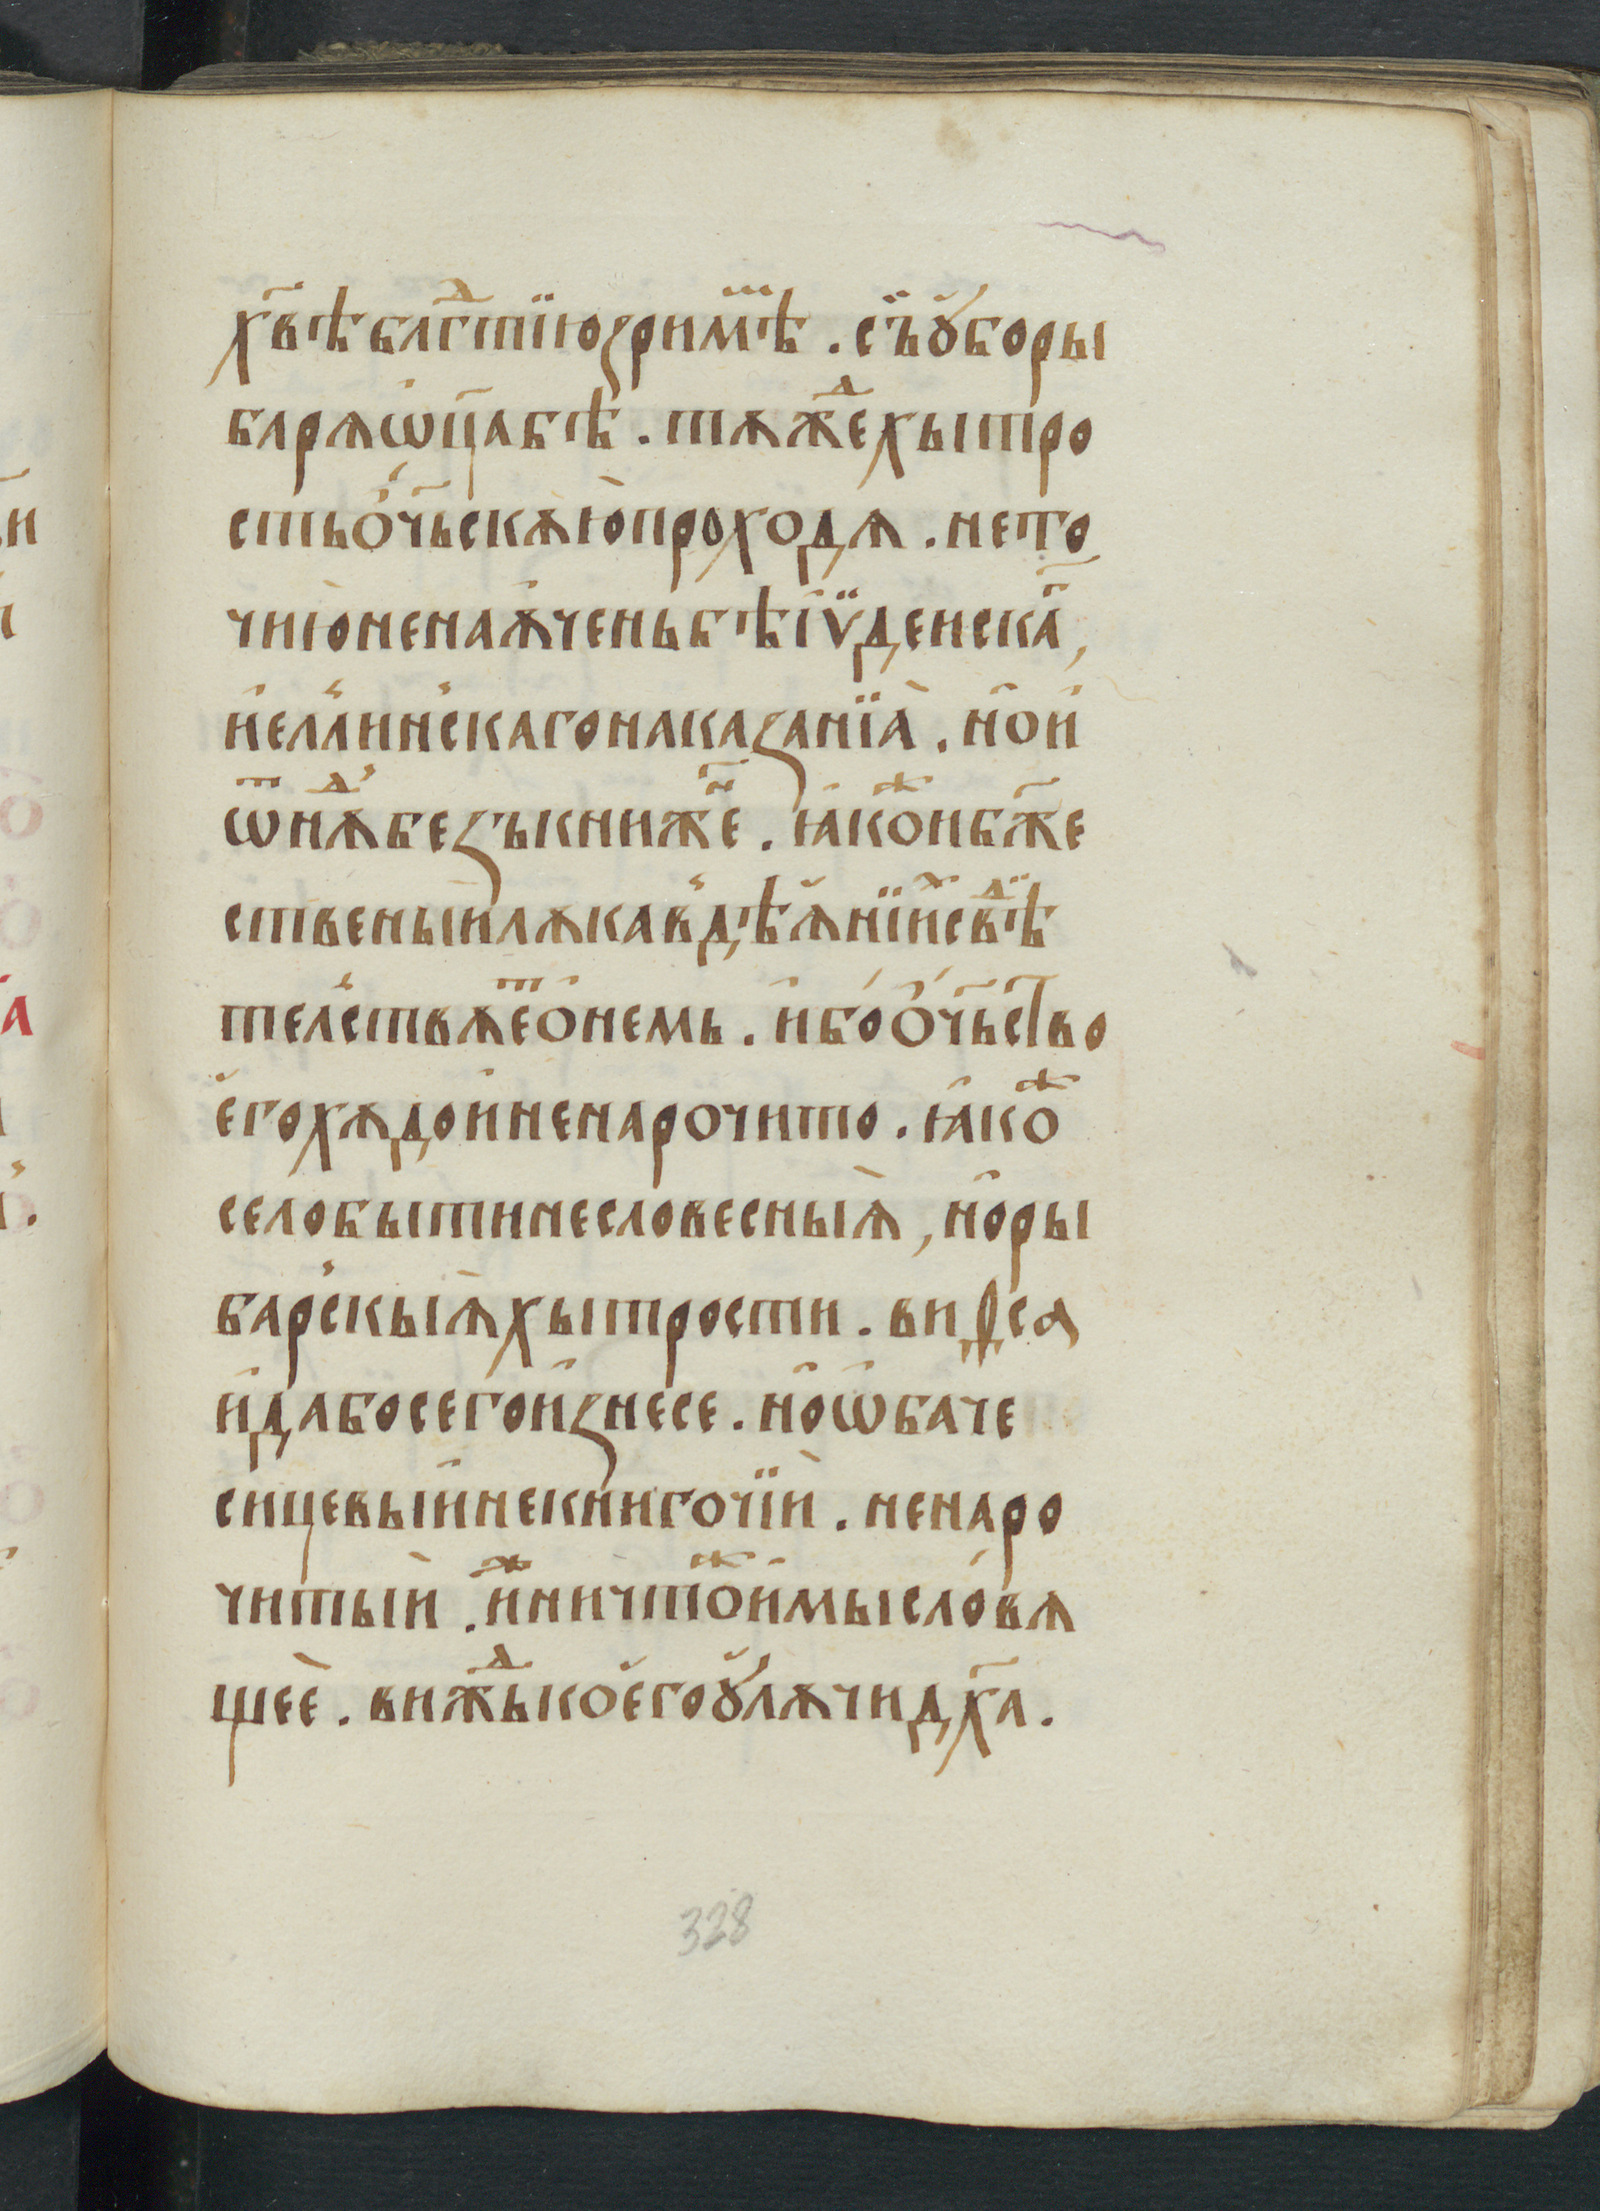 хв҃ѣ блгⷣтїю зримѣⷨ . съ ꙋборы
барѧ ѡц҃а бѣ . тѧжⷣе хытро
сть ѻч҃ьскѫю проходѧ . не то
чнїю ненаѫчень бѣ іѵдейска҃,
и елⸯлинⸯскаго наказанїа . но и
ѿнѫⷣ безъ книже҃ⷩ . ꙗкоⷤ и бж҃е
ственыи лѫка в дѣꙗнїиⷯ свⷣѣ
телⸯствѫеⷮ о немь . ибо ѻч҃ьство
его хѫдо и ненарочито . ꙗкоⷤ
село быти несловесныѧ, но ры
барⸯскыѧ хытрости . видⷺсѧ
и да бо сего изнесе . но ѡбаче
сицевыи некнигочїи . ненаро
читыи . иⷤ ничтоⷤ имы словѫ
щее . вижⷣь ко его ꙋлѫчи дх҃а .
328